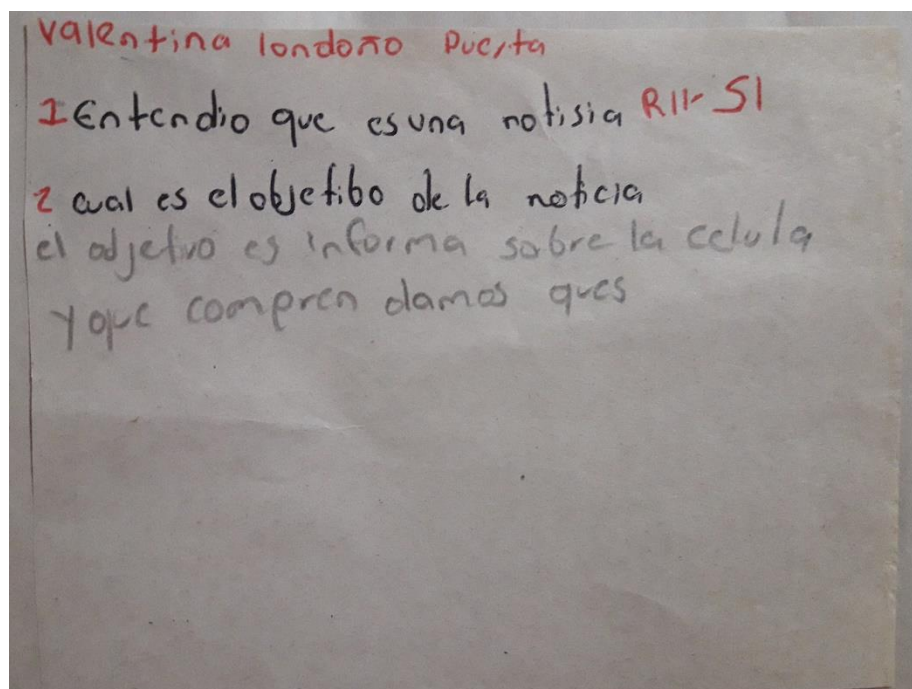 Valentina londoño Puerta
1 Entendio que es una notisia R11- SI
2 cual es el objetibo de la noticia
el odjetvo es informa sobre la celula
y que compren damos ques